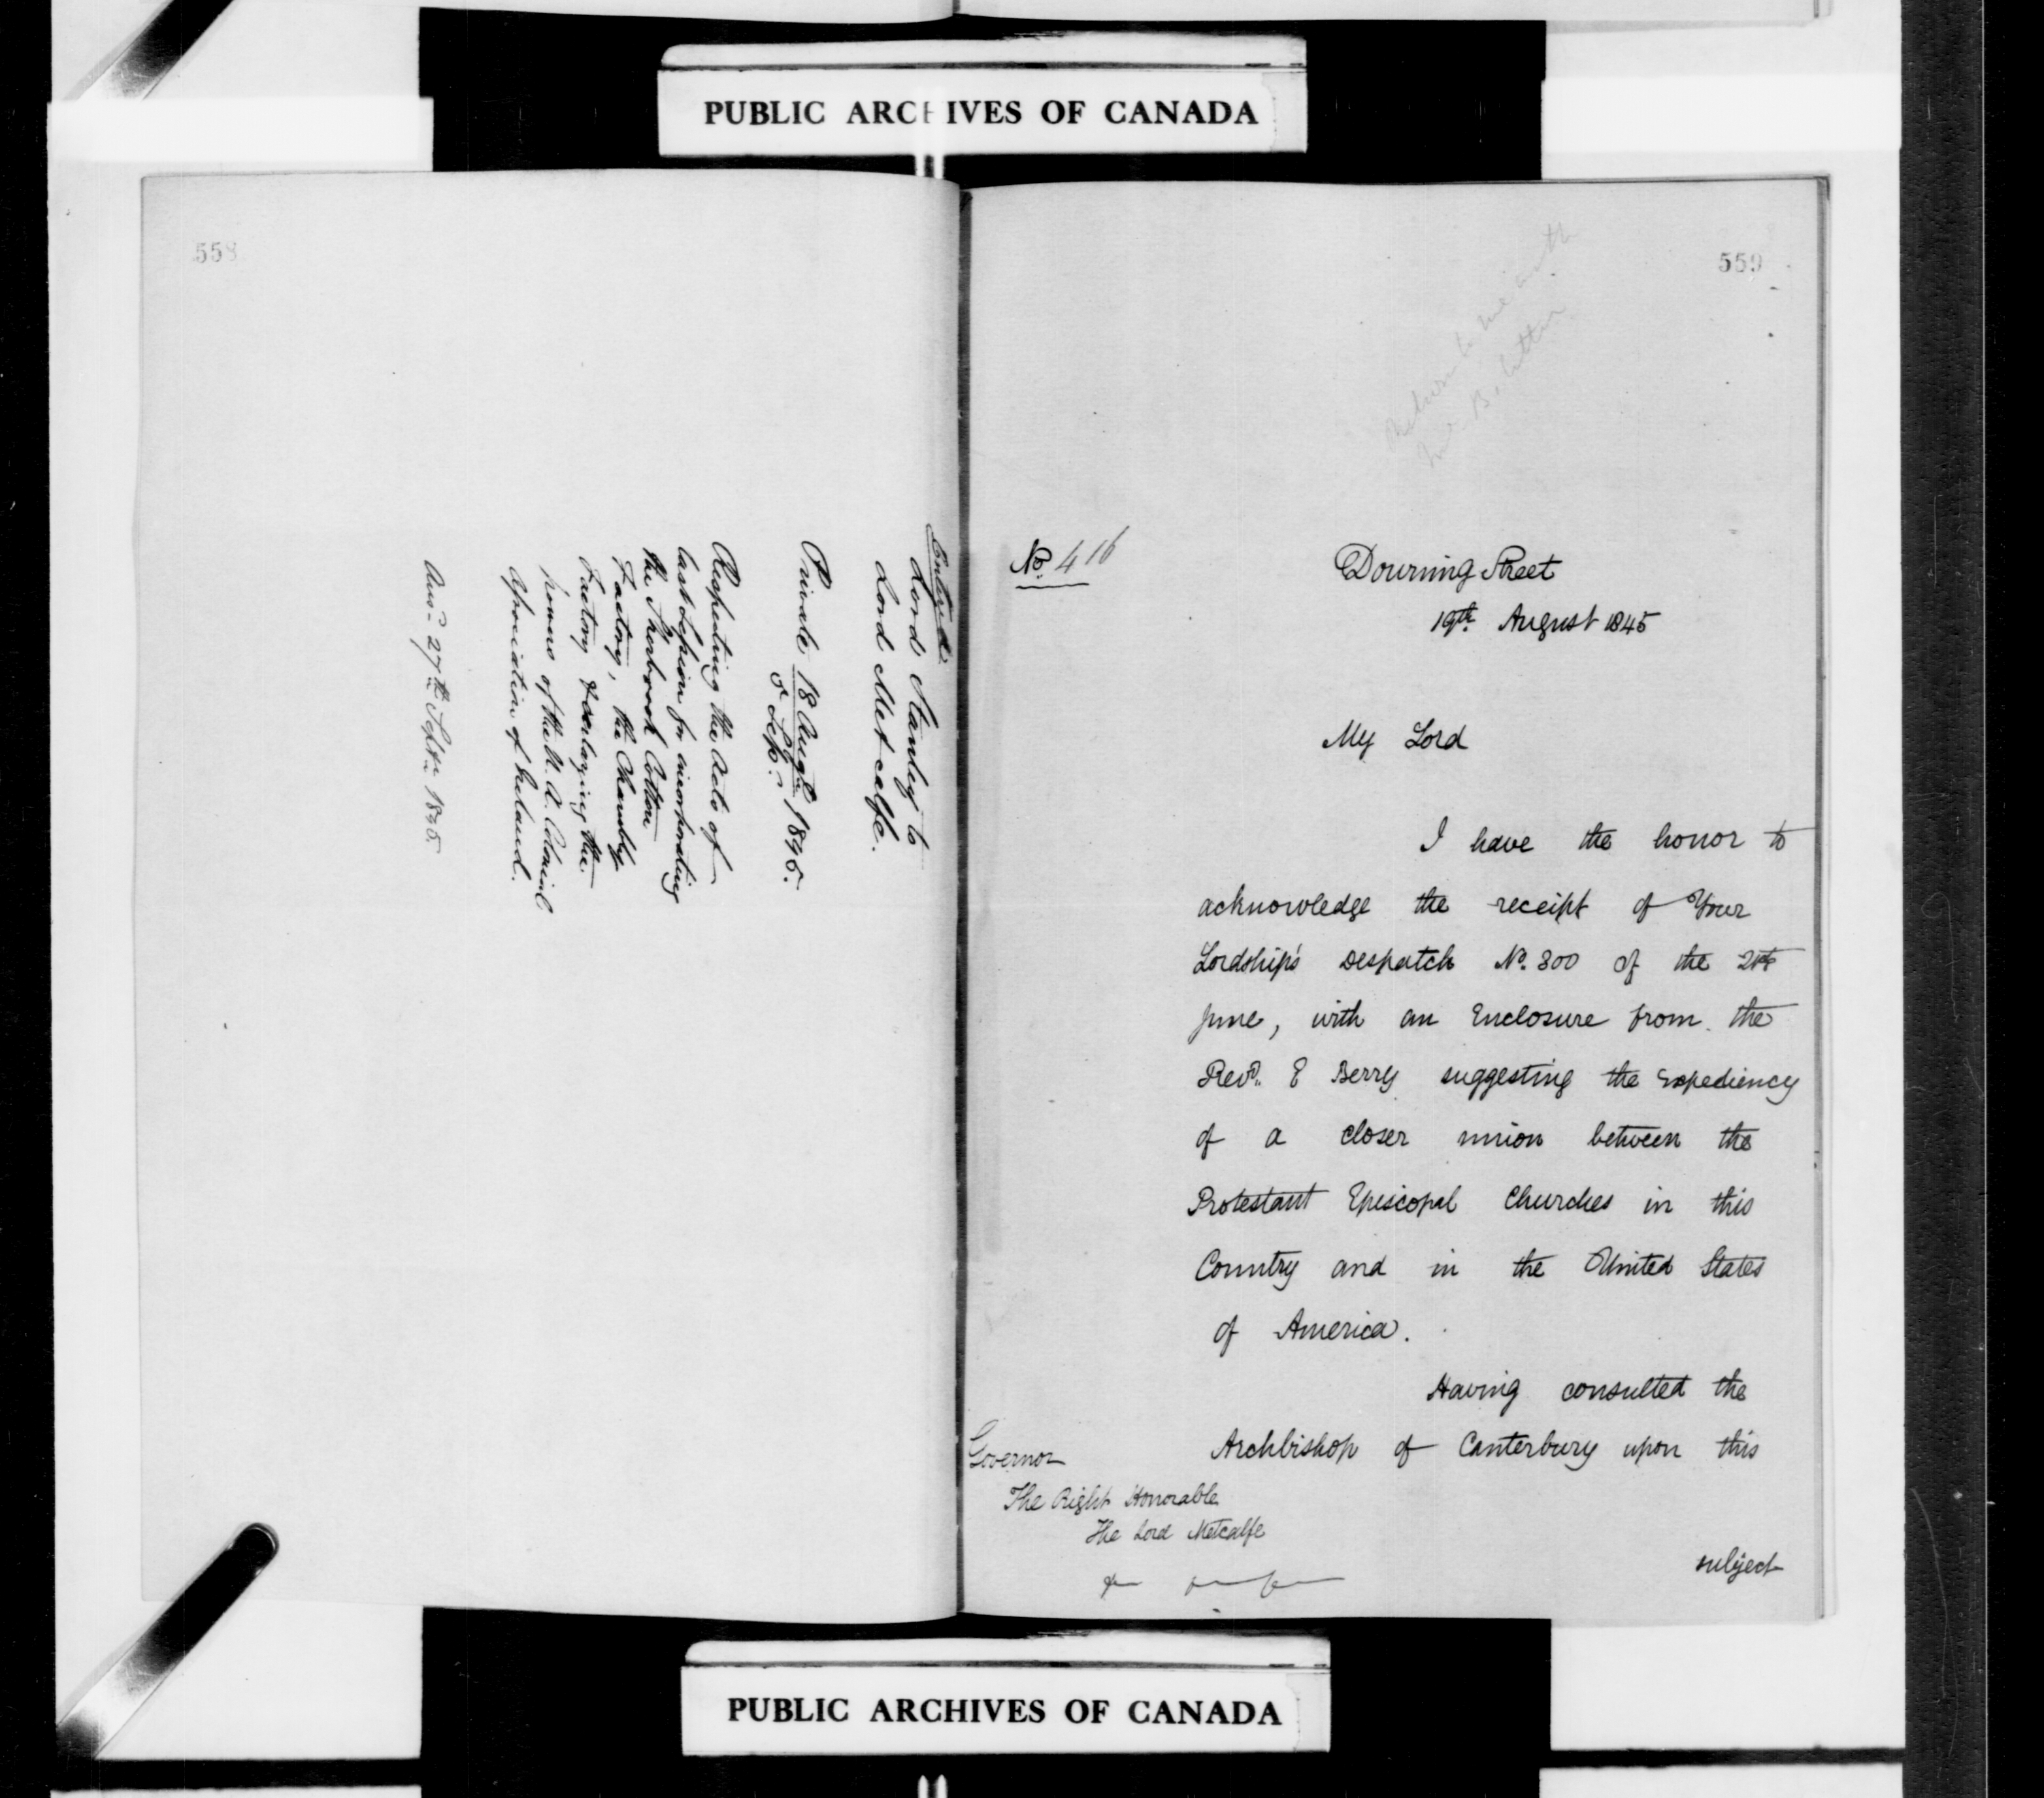 PUBLIC ARCHIVES OF CANADA
558
Lord Stanley to
Lord Metcalfe.
Private 18 Augt. 1845.
Respecting the Acts of
last Session for incorporating
the Sherbrook Cotton
Factory, the Chambly
Factory & enlarging the
powers of the N. A. Colonial
Association of Ireland.
Ansd. 27th Septr. 1845
559
No. 416
Downing Street
19th. August 1845
My Lord
I have the honor to
acknowledge the receipt of Your
Lordship's Despatch No. 300 of the
June, with an Enclosure from the
Revd. E Berry suggesting the Expediency
of a closer union between the
Protestant Episcopal Churches in this
Country and in the United States
of America.
Having consulted the
Archbishop of Canterbury upon this
Governor
The Right Honorable
The Lord Metcalfe
subject
PUBLIC ARCHIVES OF CANADA